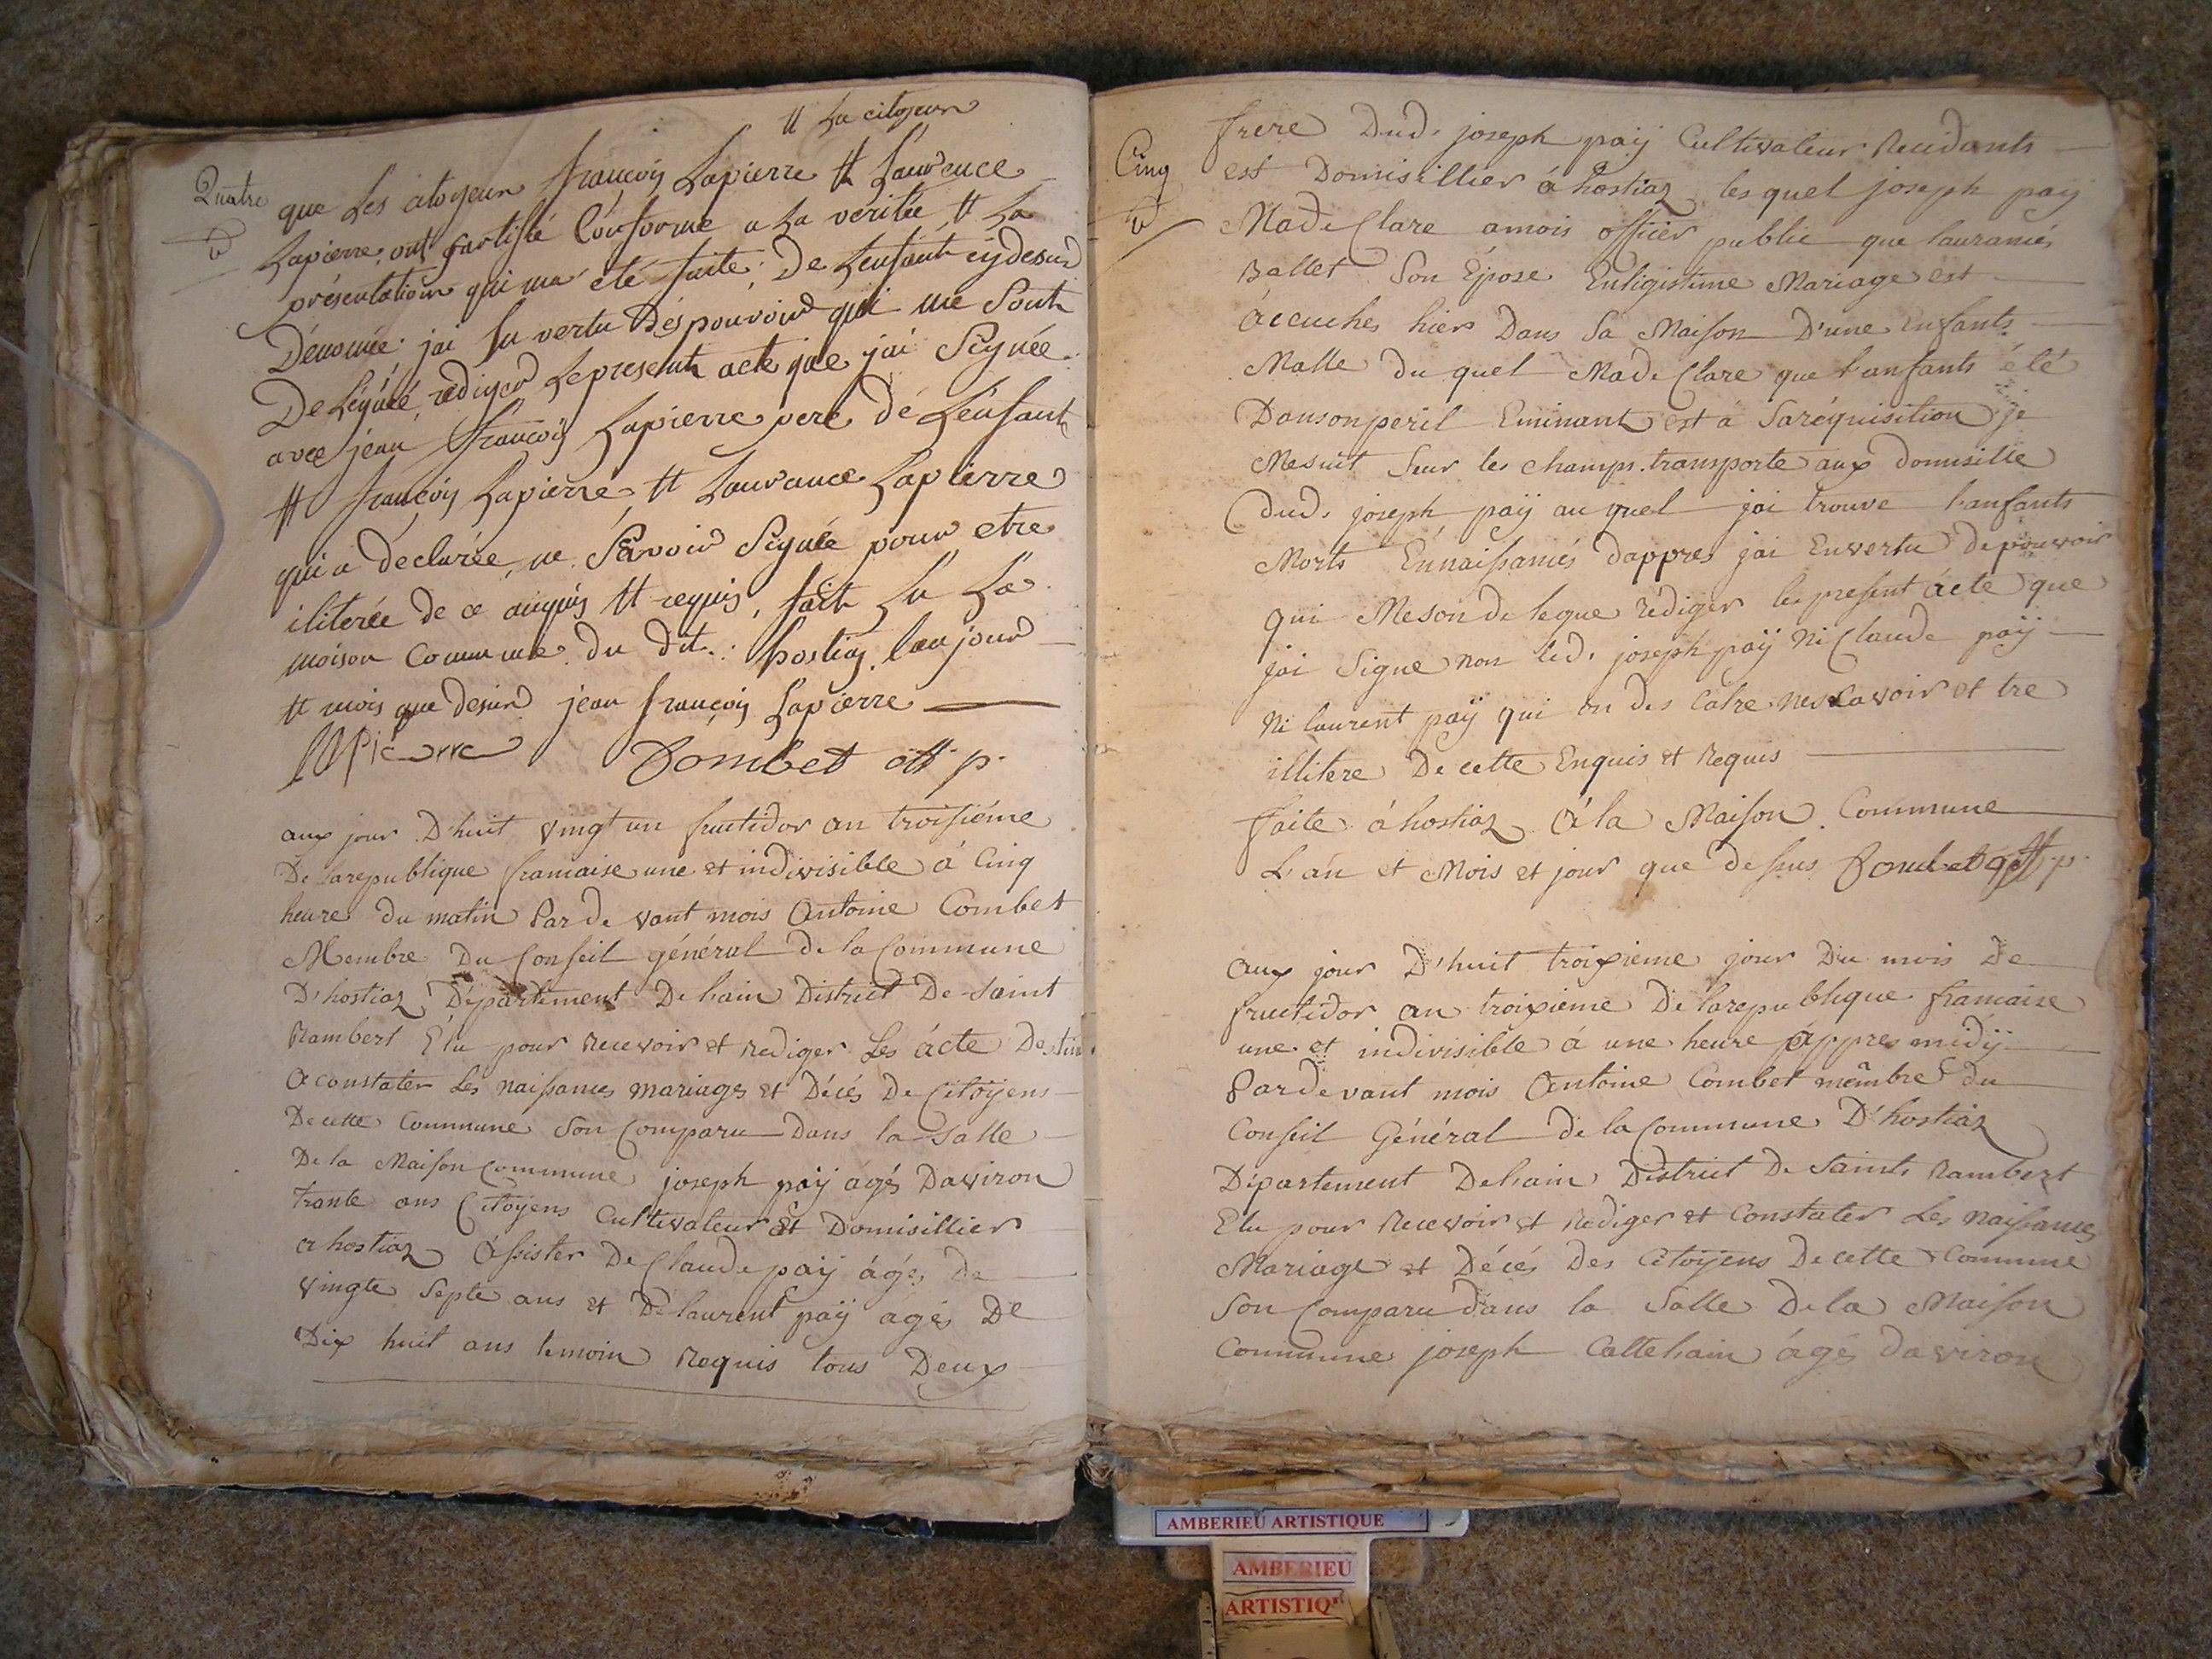 tt La citoyenne
Quatre
que Les citoyeun françois Lapierre tt Laurence
Lapierre, ont sertifié Conforme a La véritée, tt La
présentation qui ma été faite; De Lenfant cydesus
Dénomée. jai En vertu Dés pouvoirs qui me Sont
De Légué, rediger Le present acte que jai Signée
avec jean françois Lapierre pere dé Lénfant
tt françois Lapierre, tt Laurance Lapierre
qui a déclarée, ne Savoir Signée pour etre
iliterée de ce anquis tt requis, fait En La
maison Commune du dit: hostiaz. lan jour
tt mois que desus jean françois Lapierre
lapierre Combet off p.
aux jour D'huit vingt un fructidor an troisiéme
De Larepublique francaise une et indivisible á Cinq
heure du matin Par de vant mois Antoine Combet
Membre Du Conseil général de la Commune
D'hostiaz Départiment De Lain District De Saint
Rambert Élu pour Recevoir et Rediger Les ácte Destin
a constater Les naissances mariages et Décés De Citöyens
De cette Commune Son Comparu Dans la Salle
De la Maison Commune joseph paÿ ágés Daviron
trante ans Citoÿens Cultivateur et Domisillier
a hostiaz Assister De Claude paÿ ágés De
Vingte Septe ans et De laurent paÿ ágés De
Dix huit ans temoin Requis tous Deux
Cinq
frere Dud. joseph paÿ Cultivateur Residants
est Domisillier á hostiaz les quel joseph paÿ
Made Clare amois officier public que lauranses
Ballet Son Épose Enligistime Mariage est
áccuches hier Dans Sa Maison D'une Enfants
Malle du quel Made Clare que l'anfants été
Dansonperil Eminant est á Saréquisition je
Mesuit Sur les champs transporte aux domisille
dud. joseph paÿ au quel jai trouve l'anfants
Morts Énnaissances dappres jai Envertu de pouvoir
qui Meson de legue rédiger le present ácte que
jai Signe non led. joseph paÿ Ni Claude paÿ
Ni laurent paÿ qui on des Calre nessavoir et tre
illitere De cette Enquis et Requis
faite á hostiaz Á la Maison Commune
L'án et Mois et jour que dessus Combet off. p.
Aux jour D'huit troixieme jour Du mois De
fructidor an troixieme De larepublique francaise
une et indivisible á une heure áppres midÿ
Pardevant mois Antoine Combet mêmbre du
Conseil Général de la Commune D'hostiaz
Département De Lain District De Saints Rambert
Élu pour Recevoir et Rediger et Constater Les Naissances
Mariage et Décés Des Citöyens De cette Commune
Son Comparu dans la Salle De la Maison
Commune joseph Cattelain ágés daviron
AMBERIEU ARTISTIQUE
AMBERIEU
ARTISTIQ